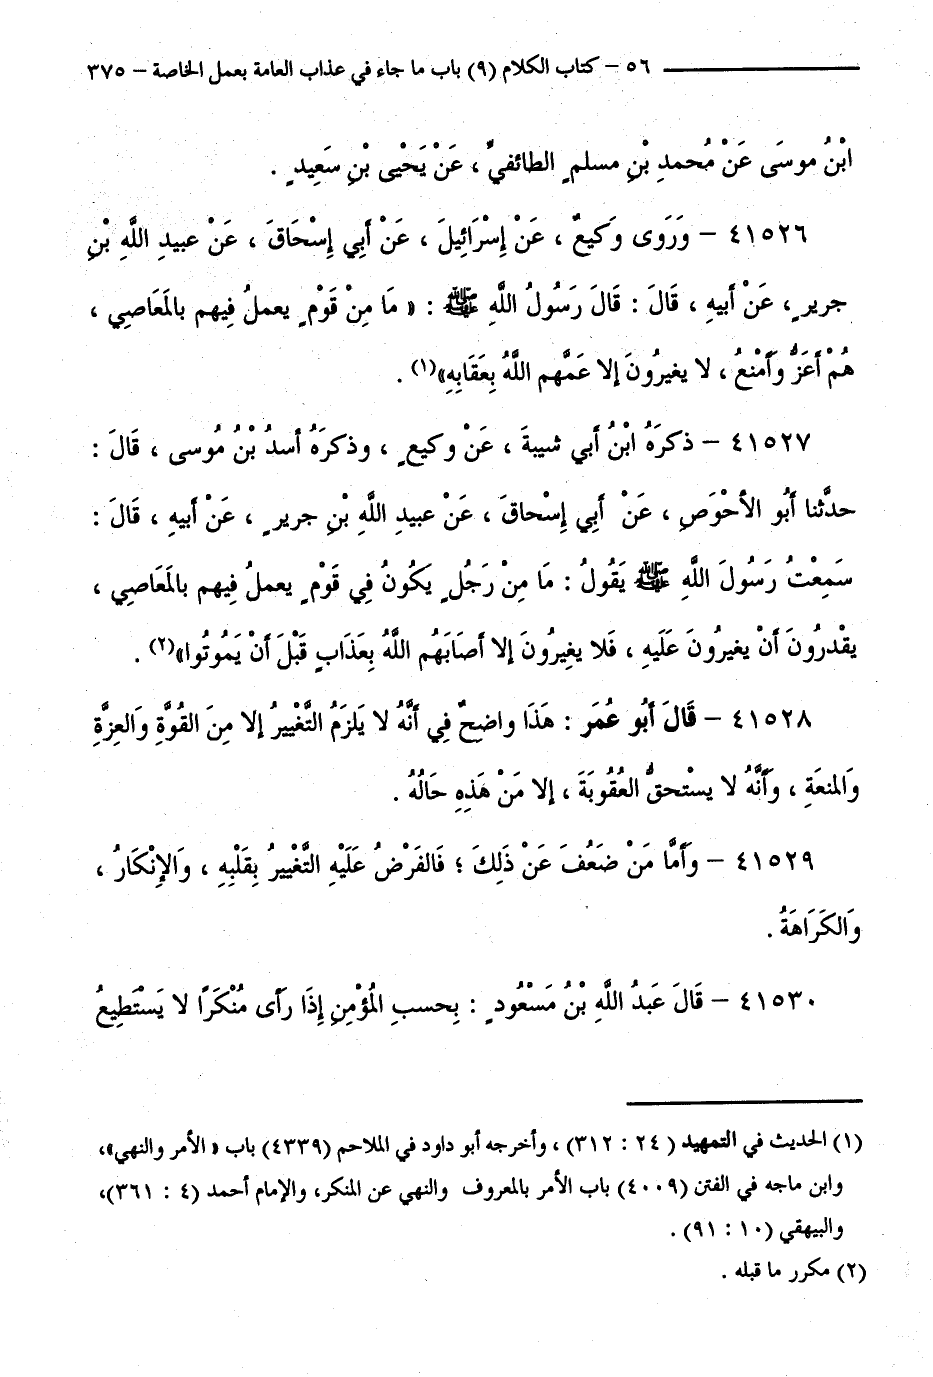 ٥٦ – كتاب الكلام (٩) باب ما جاء في عذاب العامة بعمل الخاصة – ٣٧٥
ابْنُ موسَى عَنْ مُحمدِ بْنِ مسلمٍ الطائفيِّ ، عَنْ يَحْيى بْنِ سَعِيدٍ .
٤١٥٢٦ – وَرَوَى وَكيعٌ ، عَنْ إِسْرَائِيلَ ، عَنْ أَبِي إِسْحَاقَ ، عَنْ عبيدِ اللَّهِ بْنِ
جريرٍ ، عَنْ أَبيهِ ، قَالَ : قَالَ رَسُولُ اللَّهِ ﷺ : « مَا مِنْ قَوْمٍ يعملُ فِيهم بالمَعَاصِي ،
هُمْ أَعَزُّ وَأَمْنعُ ، لا يغيرُونَ إلا عَمَّهم اللَّهُ بِعَقَابِهِ»(١) .
٤١٥٢٧ – ذكرَهُ ابْنُ أَبي شيبةَ ، عَنْ وكيعٍ ، وذكرَهُ أسدُ بْنُ مُوسى ، قَالَ :
حدَّثنا أَبُو الأحْوَصِ ، عَنْ أَبِي إِسْحاقَ ، عَنْ عبيدِ اللَّهِ بْنِ جريرٍ ، عَنْ أَبيهِ ، قَالَ :
سَمِعْتُ رَسُولَ اللَّهِ ﷺ يَقُولُ : مَا مِنْ رَجُلٍ يكُونُ فِي قَوْمٍ يعملُ فِيهم بالمَعَاصِي ،
يقْدرُونَ أَنْ يغيرُونَ عَلَيهِ ، فَلا يغِيرُونَ إلا أصَابَهُم اللَّهُ بِعَذَابٍ قَبْلَ أَنْ يَمُوتُوا»(٢) .
٤١٥٢٨ – قَالَ أَبُو عُمَر : هَذَا واضِحٌ فِي أَنَّهُ لا يَلزَمُ التَّغْييرُ إلا مِنَ القُوَّةِ وَالعِزَّةِ
وَالمنعَةِ ، وَأَنَّهُ لا يسْتحقُّ العُقُوبَةَ ، إلا مَنْ هَذِهِ حَالُهُ .
٤١٥٢٩ – وَأَمَّا مَنْ ضَعُفَ عَنْ ذَلِكَ ؛ فَالفَرْضُ عَلَيْهِ التَّغْييرُ بِقَلبِهِ ، وَالإِنْكَارُ ،
وَالكَرَاهَةُ .
٤١٥٣٠ – قَالَ عَبدُ اللَّهِ بْنُ مَسْعُودٍ : بِحسبِ المُؤْمِنِ إِذَا رَأَى مُنْكَرًا لا يَسْتَطِيعُ
(١) الحديث في التمهيد ( ٢٤ : ٣١٢) ، وأخرجه أبو داود في الملاحم (٤٣٣٩) باب « الأمر والنهي»،
وابن ماجه في الفتن (٤٠٠٩) باب الأمر بالمعروف والنهي عن المنكر، والإمام أحمد (٤ : ٣٦١)،
والبيهقي (١٠ : ٩١) .
(٢) مكرر ما قبله .